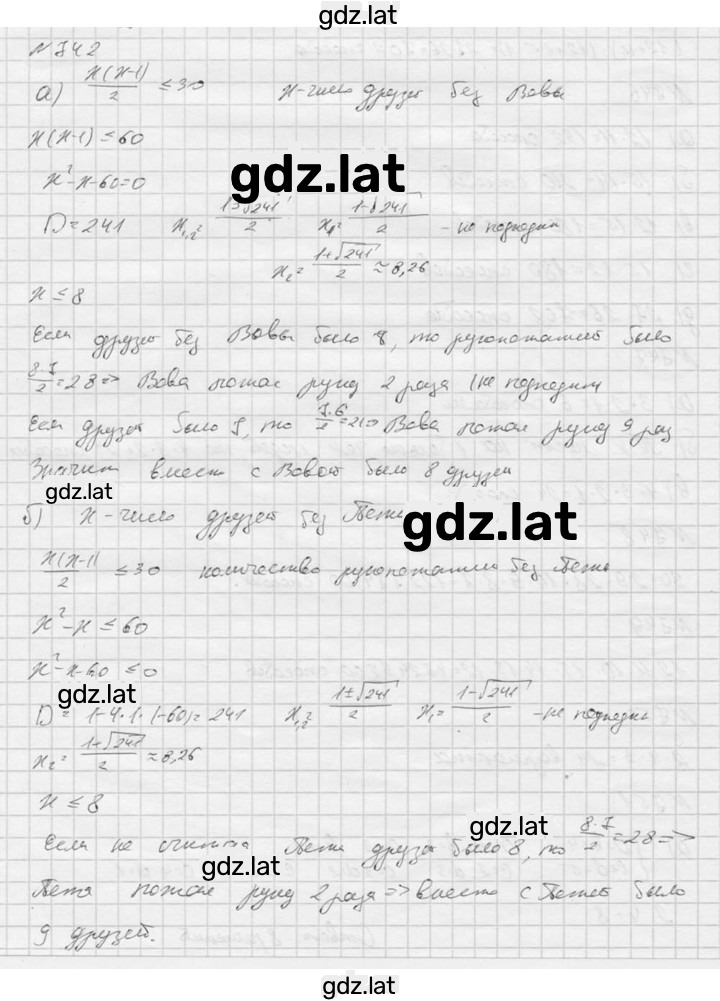 gdz.lat
N 742
а) x(x-1)/2 ≤ 30 x-число друзей без Вовы
x(x-1) ≤ 60
gdz.lat
x²-x-60=0
D=241 x₁,₂= 1±√241/2 x₁= 1-√241/2 - не подходит
x₂= 1+√241/2 ≈ 8,26
x ≤ 8
Если друзей без Вовы было 8, то рукопожатий было
8·7/2=28=> Вова пожал руку 2 раза (не подходит
Если друзей было 7, то 7·6/2=21=> Вова пожал руку 9 раз
Значит вместе с Вовой было 8 друзей
gdz.lat
б) x-число друзей без Пети
gdz.lat
x(x-1)/2 ≤ 30 количество рукопожатий без Пети
x²-x ≤ 60
x²-x-60 ≤ 0
gdz.lat
D = 1-4·1·(-60)= 241 x₁,₂= 1±√241/2 x₁= 1-√241/2 -не подходит
x₂= 1+√241/2 ≈ 8,26
x ≤ 8
gdz.lat
Если не считать Пети друзей было 8, то 8·7/2=28=>
gdz.lat
Петя пожал руку 2 раза => вместе с Петей было
9 друзей.
gdz.lat